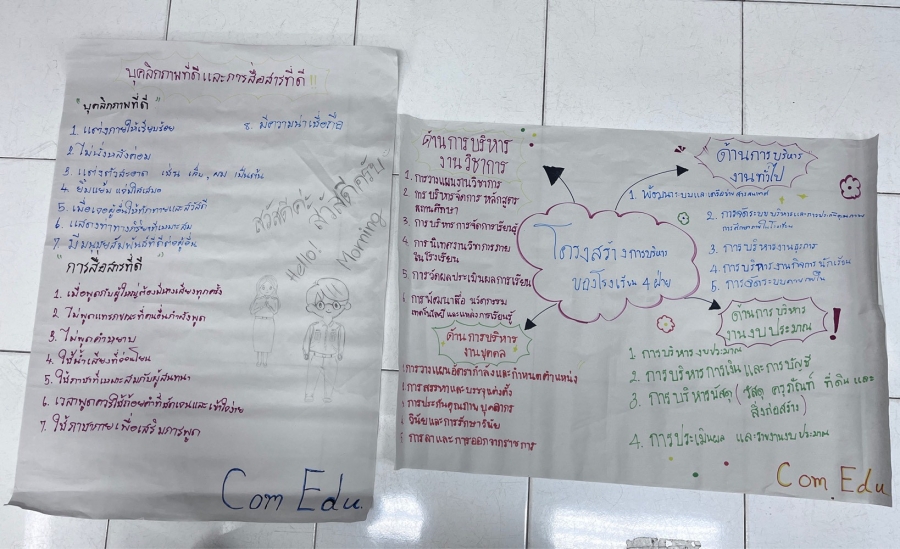 บุคลิกภาพที่ดีและการสื่อสารที่ดี !!
"บุคลิกภาพที่ดี"
1. แต่งกายให้เรียบร้อย
2. ไม่นั่งหลังค่อม
3. แต่งตัวสะอาด เช่น เล็บ, ผม เป็นต้น
4. ยิ้มแย้ม แจ่มใสเสมอ
5. เมื่อเจอผู้อื่นให้ทักทายและสวัสดี
6. แสดงท่าทางกิริยาที่เหมาะสม
7. มีมนุษยสัมพันธ์ที่ดีต่อผู้อื่น
8. มีความน่าเชื่อถือ
"การสื่อสารที่ดี"
1. เมื่อพูดกับผู้ใหญ่ต้องมีหางเสียงทุกครั้ง
2. ไม่พูดแทรกขณะที่คนอื่นกำลังพูด
3. ไม่พูดคำหยาบ
4. ใช้น้ำเสียงที่อ่อนโยน
5. ใช้ภาษาที่เหมาะสมกับคู่สนทนา
6. เวลาพูดควรใช้ถ้อยคำที่ชัดเจนและเข้าใจง่าย
7. ใช้ภาษากายเพื่อเสริมการพูด
สวัสดีค่ะ
สวัสดีครับ
Hello!
Morning
Com Edu.
โครงสร้างการบริหาร
ของโรงเรียน 4 ฝ่าย
ด้านการบริหาร
งานวิชาการ
1. การวางแผนงานวิชาการ
2. การบริหารจัดการหลักสูตร
สถานศึกษา
3. การบริหารการจัดการเรียนรู้
4. การนิเทศงานวิชาการภาย
ในโรงเรียน
5. การวัดผลประเมินผลการเรียน
การพัฒนาสื่อ นวัตกรรม
เทคโนโลยี และแหล่งการเรียนรู้
ด้านการบริหาร
งานทั่วไป
1. พัฒนาระบบและเครือข่าย
2. การจัดระบบบริหารและการ
3. การบริหารงานธุรการ
4. การบริหารงานกิจการนักเรียน
5. การจัดระบบควบคุมภายใน
ด้านการบริหาร
งานบุคคล
การวางแผนอัตรากำลังและกำหนดตำแหน่ง
การสรรหาและบรรจุแต่งตั้ง
การประกันคุณภาพบุคลากร
วินัยและการรักษาวินัย
การลาและการออกจากราชการ
ด้านการบริหาร
งานงบประมาณ !
1. การบริหารงบประมาณ
2. การบริหารการเงินและการบัญชี
3. การบริหารพัสดุ (วัสดุ ครุภัณฑ์ ที่ดินและ
สิ่งก่อสร้าง)
4. การประเมินผล และรายงานงบประมาณ
Com. Edu